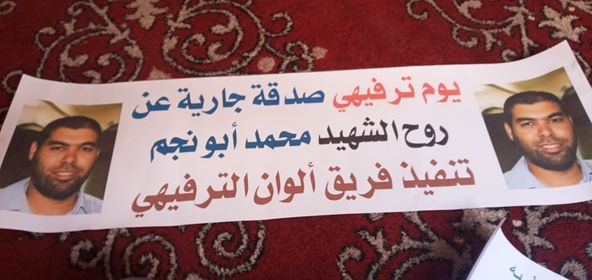 يوم ترفيهي صدقة جارية عن
روح الشهيد محمد أبو نجم
تنفيذ فريق ألوان الترفيهي